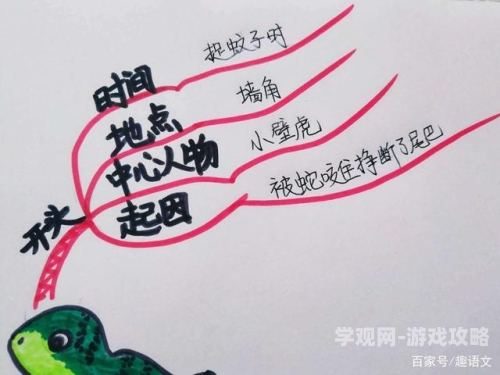 时间
捉蚊子时
地点
墙角
中心人物
小壁虎
起因
被蛇咬住挣断了尾巴
开头
学观网-游戏攻略
百家号/趣语文